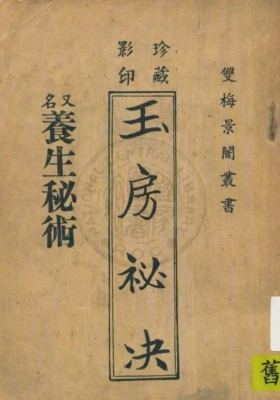 珍藏
影印
雙梅景闇叢書
玉房祕决
又名
養生秘術
舊